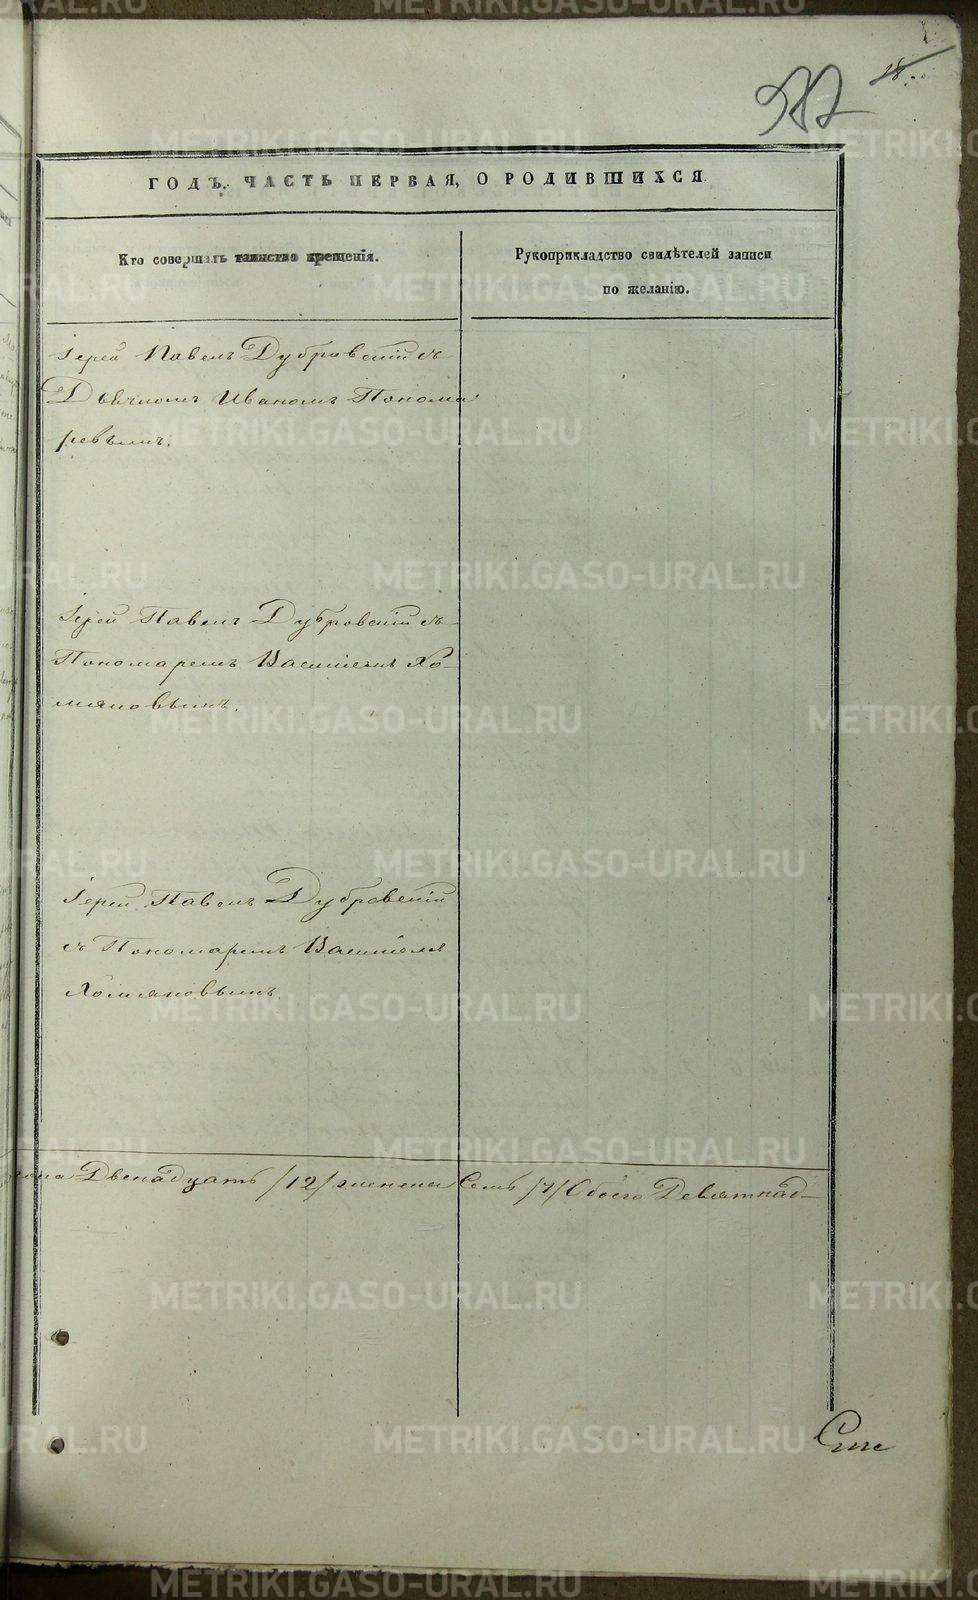 18.
ГОДЪ. ЧАСТЬ ПЕРВАЯ, О РОДИВШИХСЯ.
Кто совершалъ таинство крещенія.
Рукоприкладство свидѣтелей записи
по желанію.
Іерей Павелъ Дубровскій съ
Дьячкомъ Иваномъ Понома
ревымъ.
Іерей Павелъ Дубровскій съ
Пономаремъ Василіемъ Хо-
мяковымъ.
Іерей Павелъ Дубровскій
съ Пономаремъ Василіемъ
Хомяковымъ.
Двенадцать /12/ женска Семь /7/ Обоего Девятнад-
METRIKI.GASO-URAL.RU